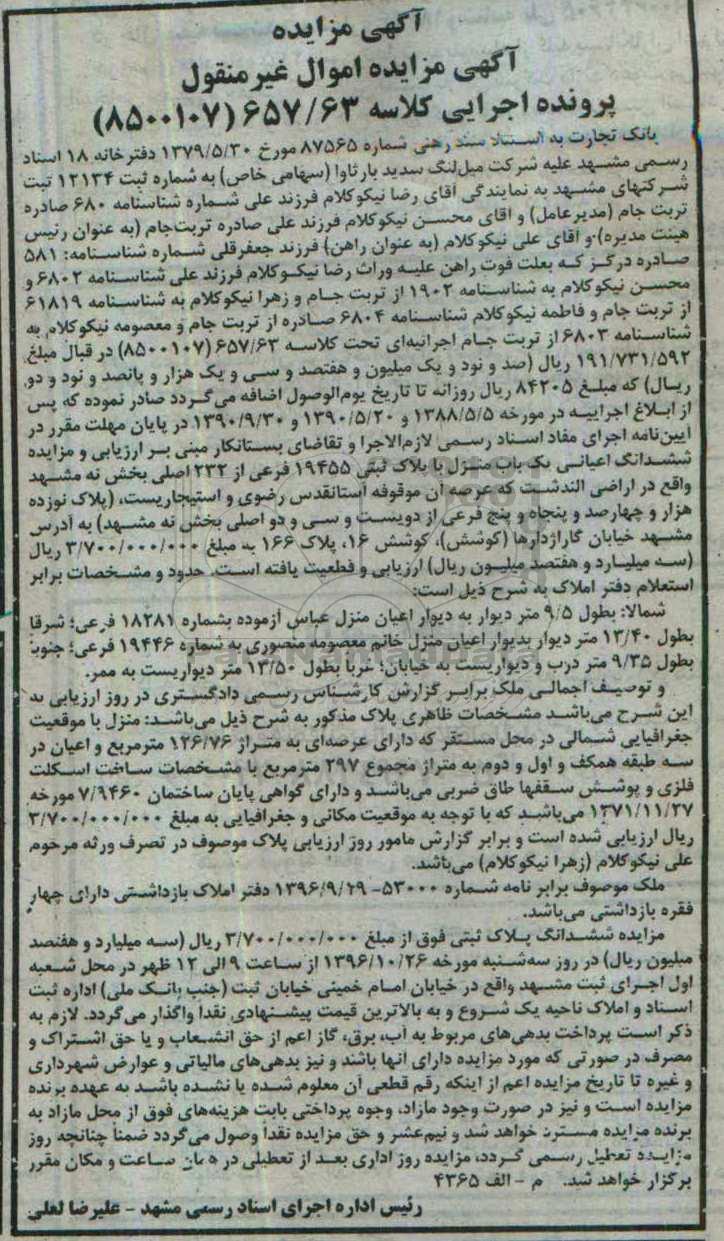 آگهی مزایده
آگهی مزایده اموال غیرمنقول
پرونده اجرایی کلاسه ۶۵۷/۶۳ (۸۵۰۰۱۰۷)
بانک تجارت به استناد سند رهنی شماره ۸۷۵۶۵ مورخ ۱۳۷۹/۵/۳۰ دفترخانه ۱۸ اسناد
رسمی مشهد علیه شرکت مبل‌لنگ سدید یارتاوا (سهامی خاص) به شماره ثبت ۱۲۱۳۴ ثبت
شرکتهای مشهد به نمایندگی آقای رضا نیکوکلام فرزند علی شماره شناسنامه ۶۸۰ صادره
تربت جام (مدیرعامل) و اقای محسن نیکوکلام فرزند علی صادره تربت‌جام (به عنوان رئیس
هیئت مدیره) و اقای علی نیکوکلام (به عنوان راهن) فرزند جعفرقلی شماره شناسنامه: ۵۸۱
صادره درگز که بعلت فوت راهن علیه وراث رضا نیکوکلام فرزند علی شناسنامه ۶۸۰۲ و
محسن نیکوکلام به شناسنامه ۱۹۰۲ از تربت جام و زهرا نیکوکلام به شناسنامه ۶۱۸۱۹
از تربت جام و فاطمه نیکوکلام شناسنامه ۶۸۰۴ صادره از تربت جام و معصومه نیکوکلام به
شناسنامه ۶۸۰۳ از تربت جام اجرائیه‌ای تحت کلاسه ۶۵۷/۶۳ (۸۵۰۰۱۰۷) در قبال مبلغ
۱۹۱/۷۳۱/۵۹۲ ریال (صد و نود و یک میلیون و هفتصد و سی و یک هزار و پانصد و نود و دو
ریال) که مبلغ ۸۴۲۰۵ ریال روزانه تا تاریخ یوم‌الوصول اضافه می‌گردد صادر نموده که پس
از ابلاغ اجراییه در مورخه ۱۳۸۸/۵/۵ و ۱۳۹۰/۵/۲۰ و ۱۳۹۰/۹/۳۰ در پایان مهلت مقرر در
آیین‌نامه اجرای مفاد اسناد رسمی لازم‌الاجرا و تقاضای بستانکار مبنی بر ارزیابی و مزایده
ششدانگ اعیانی یک باب منزل با پلاک ثبتی ۱۹۴۵۵ فرعی از ۲۳۲ اصلی بخش نه مشهد
واقع در اراضی الندشت که عرصه آن موقوفه آستانقدس رضوی و استیجاریست، (پلاک نوزده
هزار و چهارصد و پنجاه و پنج فرعی از دویست و سی و دو اصلی بخش نه مشهد) به آدرس
مشهد خیابان گاراژدارها (کوشش)، کوشش ۱۶، پلاک ۱۶۶ به مبلغ ۳/۷۰۰/۰۰۰/۰۰۰ ریال
(سه میلیارد و هفتصد میلیون ریال) ارزیابی و قطعیت یافته است. حدود و مشخصات برابر
استعلام دفتر املاک به شرح ذیل است:
شمالا: بطول ۹/۵ متر دیوار به دیوار اعیان منزل عباس آزموده بشماره ۱۸۲۸۱ فرعی؛ شرقا
بطول ۱۳/۴۰ متر دیوار بدیوار اعیان منزل خانم معصومه منصوری به شماره ۱۹۴۴۶ فرعی؛ جنوبا
بطول ۹/۳۵ متر درب و دیواریست به خیابان؛ غربا بطول ۱۳/۵۰ متر دیواریست به ممر.
و توصیف اجمالی ملک برابر گزارش کارشناس رسمی دادگستری در روز ارزیابی به
این شرح می‌باشد مشخصات ظاهری پلاک مذکور به شرح ذیل می‌باشد: منزل با موقعیت
جغرافیایی شمالی در محل مستقر که دارای عرصه‌ای به متراژ ۱۲۶/۷۶ مترمربع و اعیان در
سه طبقه همکف و اول و دوم به متراژ مجموع ۲۹۷ مترمربع با مشخصات ساخت اسکلت
فلزی و پوشش سقفها طاق ضربی می‌باشد و دارای گواهی پایان ساختمان ۷/۹۴۶۰ مورخه
۱۳۷۱/۱۱/۲۷ می‌باشد که با توجه به موقعیت مکانی و جغرافیایی به مبلغ ۳/۷۰۰/۰۰۰/۰۰۰
ریال ارزیابی شده است و برابر گزارش مامور روز ارزیابی پلاک موصوف در تصرف ورثه مرحوم
علی نیکوکلام (زهرا نیکوکلام) می‌باشد.
ملک موصوف برابر نامه شماره ۵۳۰۰۰- ۱۳۹۶/۹/۲۹ دفتر املاک بازداشتی دارای چهار
فقره بازداشتی می‌باشد.
مزایده ششدانگ پلاک ثبتی فوق از مبلغ ۳/۷۰۰/۰۰۰/۰۰۰ ریال (سه میلیارد و هفتصد
میلیون ریال) در روز سه‌شنبه مورخه ۱۳۹۶/۱۰/۲۶ از ساعت ۹ الی ۱۲ ظهر در محل شعبه
اول اجرای ثبت مشهد واقع در خیابان امام خمینی خیابان ثبت (جنب بانک ملی) اداره ثبت
اسناد و املاک ناحیه یک شروع و به بالاترین قیمت پیشنهادی نقدا واگذار می‌گردد. لازم به
ذکر است پرداخت بدهی‌های مربوط به آب، برق، گاز اعم از حق انشعاب و یا حق اشتراک و
مصرف در صورتی که مورد مزایده دارای انها باشند و نیز بدهی‌های مالیاتی و عوارض شهرداری
و غیره تا تاریخ مزایده اعم از اینکه رقم قطعی آن معلوم شده یا نشده باشد به عهده برنده
مزایده است و نیز در صورت وجود مازاد، وجوه پرداختی بابت هزینه‌های فوق از محل مازاد به
برنده مزایده مسترد خواهد شد و نیم‌عشر و حق مزایده نقدا وصول می‌گردد ضمناً چنانچه روز
مزایده تعطیل رسمی گردد، مزایده روز اداری بعد از تعطیلی در همان ساعت و مکان مقرر
برگزار خواهد شد. م - الف ۴۳۶۵
رئیس اداره اجرای اسناد رسمی مشهد - علیرضا لعلی